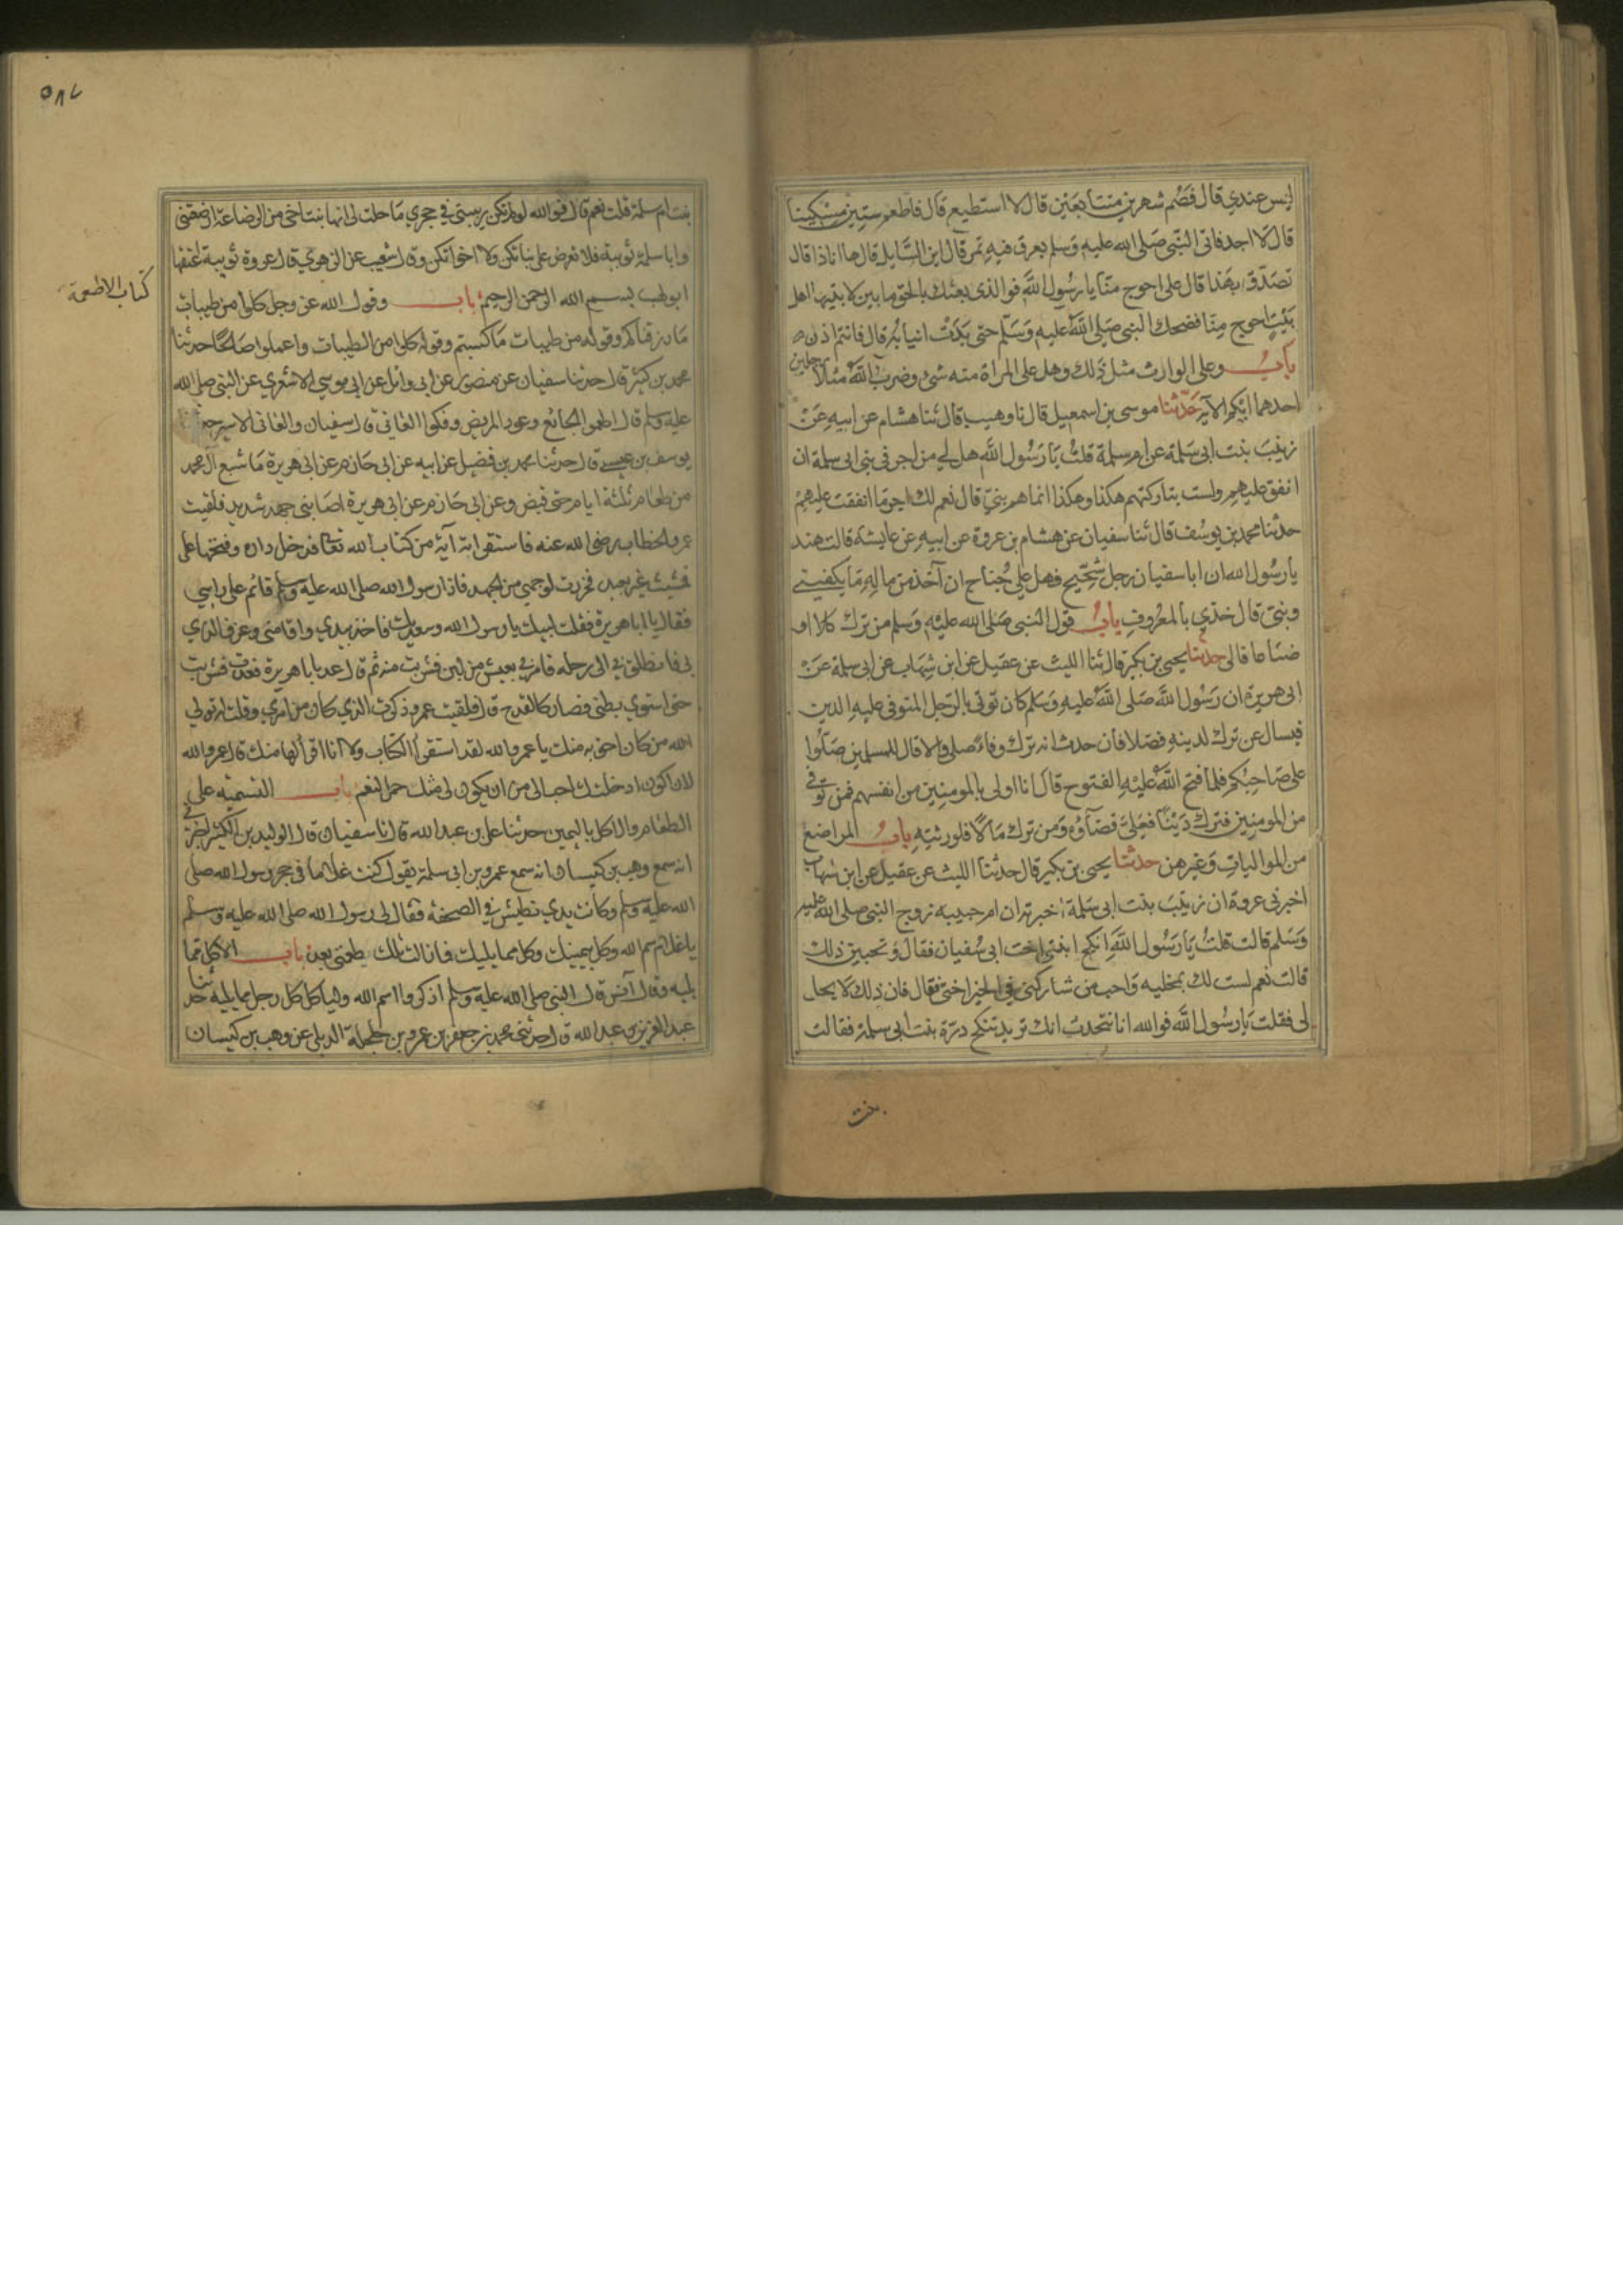 ليس عندي قال فصُم شهرين متتابعَين قال لا استطيع قال فاطعم ستين مسكينا
قال لا اجد فاتى النبي صَلى الله عليه وَسلم بعرق فيه تمر قال اين السَّايل قال ها انا ذا قال
تصَدّق بهَذا قال على احوج منّا يا رسُول الله فوالذى بعثك بالحق ما بين لابتيها اهل
بَيت احوج منّا فضحك النبي صَلى اللهُ عليه وَسَلم حتى بدَت انيابُه قال فانتم اذن
بابُ وعلى الوارث مثل ذَلك وهل على المراة منه شئ وضربَ اللهُ مثلاً رجلين
احدهما ابكم الآية حَدّثنا موسى بن اسمعيل قال نا وهيب قال ثنا هشام عن ابيه عَن
زينبَ بنت ابى سَلمة عن ام سلمة قلتُ يَا رَسُول الله هل لي من اجر في بنى ابى سلمة ان
انفق عليهم ولست بتاركتهم هكذا وهكذا انما هم بنيّ قال نعم لك اجر مَا انفقت عليهم
حدثنا محمد بن يوسُف قال ثنا سفيان عن هشام بن عروة عن ابيه عن عايشة قالت هند
يا رسُول الله ان ابا سفيان رجل شحيح فهل علي جُناح ان آخذ من ماله مَا يكفيني
وبنيّ قال خذي بالمعرُوف بابُ قول النبي صَلى الله عليه وَسلم من ترك كلا او
ضيَاعا فالى حدثنا يحيى بن بكير قال ثنا الليث عن عقيل عن ابن شهَاب عن ابى سلمة عَن
ابى هريرة ان رَسُول الله صَلى اللهُ عليه وَسَلم كان توتى بالرّجل المتوفى عليه الدين
فيسال عن ترك لدينه فضلا فان حدث انه ترك وفاءً صلى والا قال للمسلمين صَلّوا
على صَاحبكم فلما فتح اللهُ عليْه الفتوح قال انا اولى بالمومنين من انفسهم فمن توفي
من المومنين فترك دَيْناً فعلىَّ قضَاؤه وَمن ترك مَالاً فلورثته بابُ المراضع
من المواليات وَغيرهن حدثنا يحيى بن بكير قال حدثنا الليث عن عقيل عن ابن شهاب
اخبرنى عروة ان زينبَ بنت ابى سَلمة اخبرته ان ام حبيبه زوج النبى صلى الله عليه
وَسَلم قالت قلتُ يَا رَسُول الله انكح ابنتي اخت ابى سُفيان فقال وَتحبين ذلك
قالت نعم لست لك بمخليه وَاحب من شاركنى في الخير اختي فقال فان ذلك لا يحل
لى فقلت يَا رسُول الله فوالله انا نتحدث انك تريد تنكح درّة بنت ابى سلمة فقالت
بنت
٥٨٧
كتاب الاطعمة
بنت ام سلمة قلت نعم قال فوالله لو لم تكن ربيبتى في حجري مَا حلت لى انها بنت اخى من الرضاعة ارضعتنى
وابا سلمة ثويبة فلا تعرضن على بناتكن ولا اخواتكن وقال شعيب عن الزهري قال عروة ثويبة اعتقها
ابو لهب بسم الله الرحمن الرحيم باب وقول الله عز وجل كلوا من طيبات
مَا رزقناكم وقوله من طيبات مَا كسبتم وقوله كلوا من الطيبات واعملوا صَالحًا حدثنا
محمد بن كثير قال حدثنا سفيان عن منصور عن ابى وائل عن ابى موسى الاشعري عن النبى صلى الله
عليه وسلم قال اطعموا الجائع وعودوا المريض وفكوا العاني قال سفيان والعانى الاسير حدثنا
يوسف بن عيسى قال حدثنا محمد بن فضيل عن ابيه عن ابى حازم عن ابى هريرة مَا شبع ال محمد
من طعام ثلثة ايام حتى قبض وعن ابى حازم عن ابى هريرة اصَابنى جهد شديد فلقيت
عمر بن الخطاب رضى الله عنه فاستقراته آية من كتاب الله تعَالى فدخل داره وفتحها على
فمشيت غير بعيد فخررت لوجهي من الجهد فاذا رسول الله صلى الله عليه وسلم قائم على راسي
فقال يا ابا هريرة فقلت لبيك يا رسول الله وسعديك فاخذ بيدي واقامنى وعرف الذي
بى فانطلق بى الى رحله فامر لي بعس من لبن فشربت منه ثم قال عد يا ابا هريرة فعدت فشربت
حتى استوي بطنى فصار كالقدح قال فلقيت عمر وذكرت الذي كان من امري وقلت له تولى
الله من كان احق به منك يا عمر والله لقد استقرأتك الكتاب ولا انا اقرأ لها منك قال عمر والله
لان اكون ادخلتك احب الى من ان يكون لى مثل حمر النعم باب التسمية على
الطعام والاكل باليمين حدثنا على بن عبد الله قال انا سفيان قال الوليد بن كثير اخبرنى
انه سمع وهب بن كيسان انه سمع عمر بن ابى سلمة يقول كنت غلاما في حجر رسول الله صلى
الله عليه وسلم وكانت يدي تطيش في الصحفة فقال لى رسول الله صلى الله عليه وسلم
يا غلام سم الله وكل بيمينك وكل مما يليك فما زالت تلك طعمتى بعد باب الاكل مما
يليه وقال انس قال النبى صلى الله عليه وسلم اذكروا اسم الله ولياكل كل رجل مما يليه حدثنا
عبد العزيز بن عبد الله قال حدثنى محمد بن جعفر عن عمرو بن حلحلة الديلى عن وهب بن كيسان